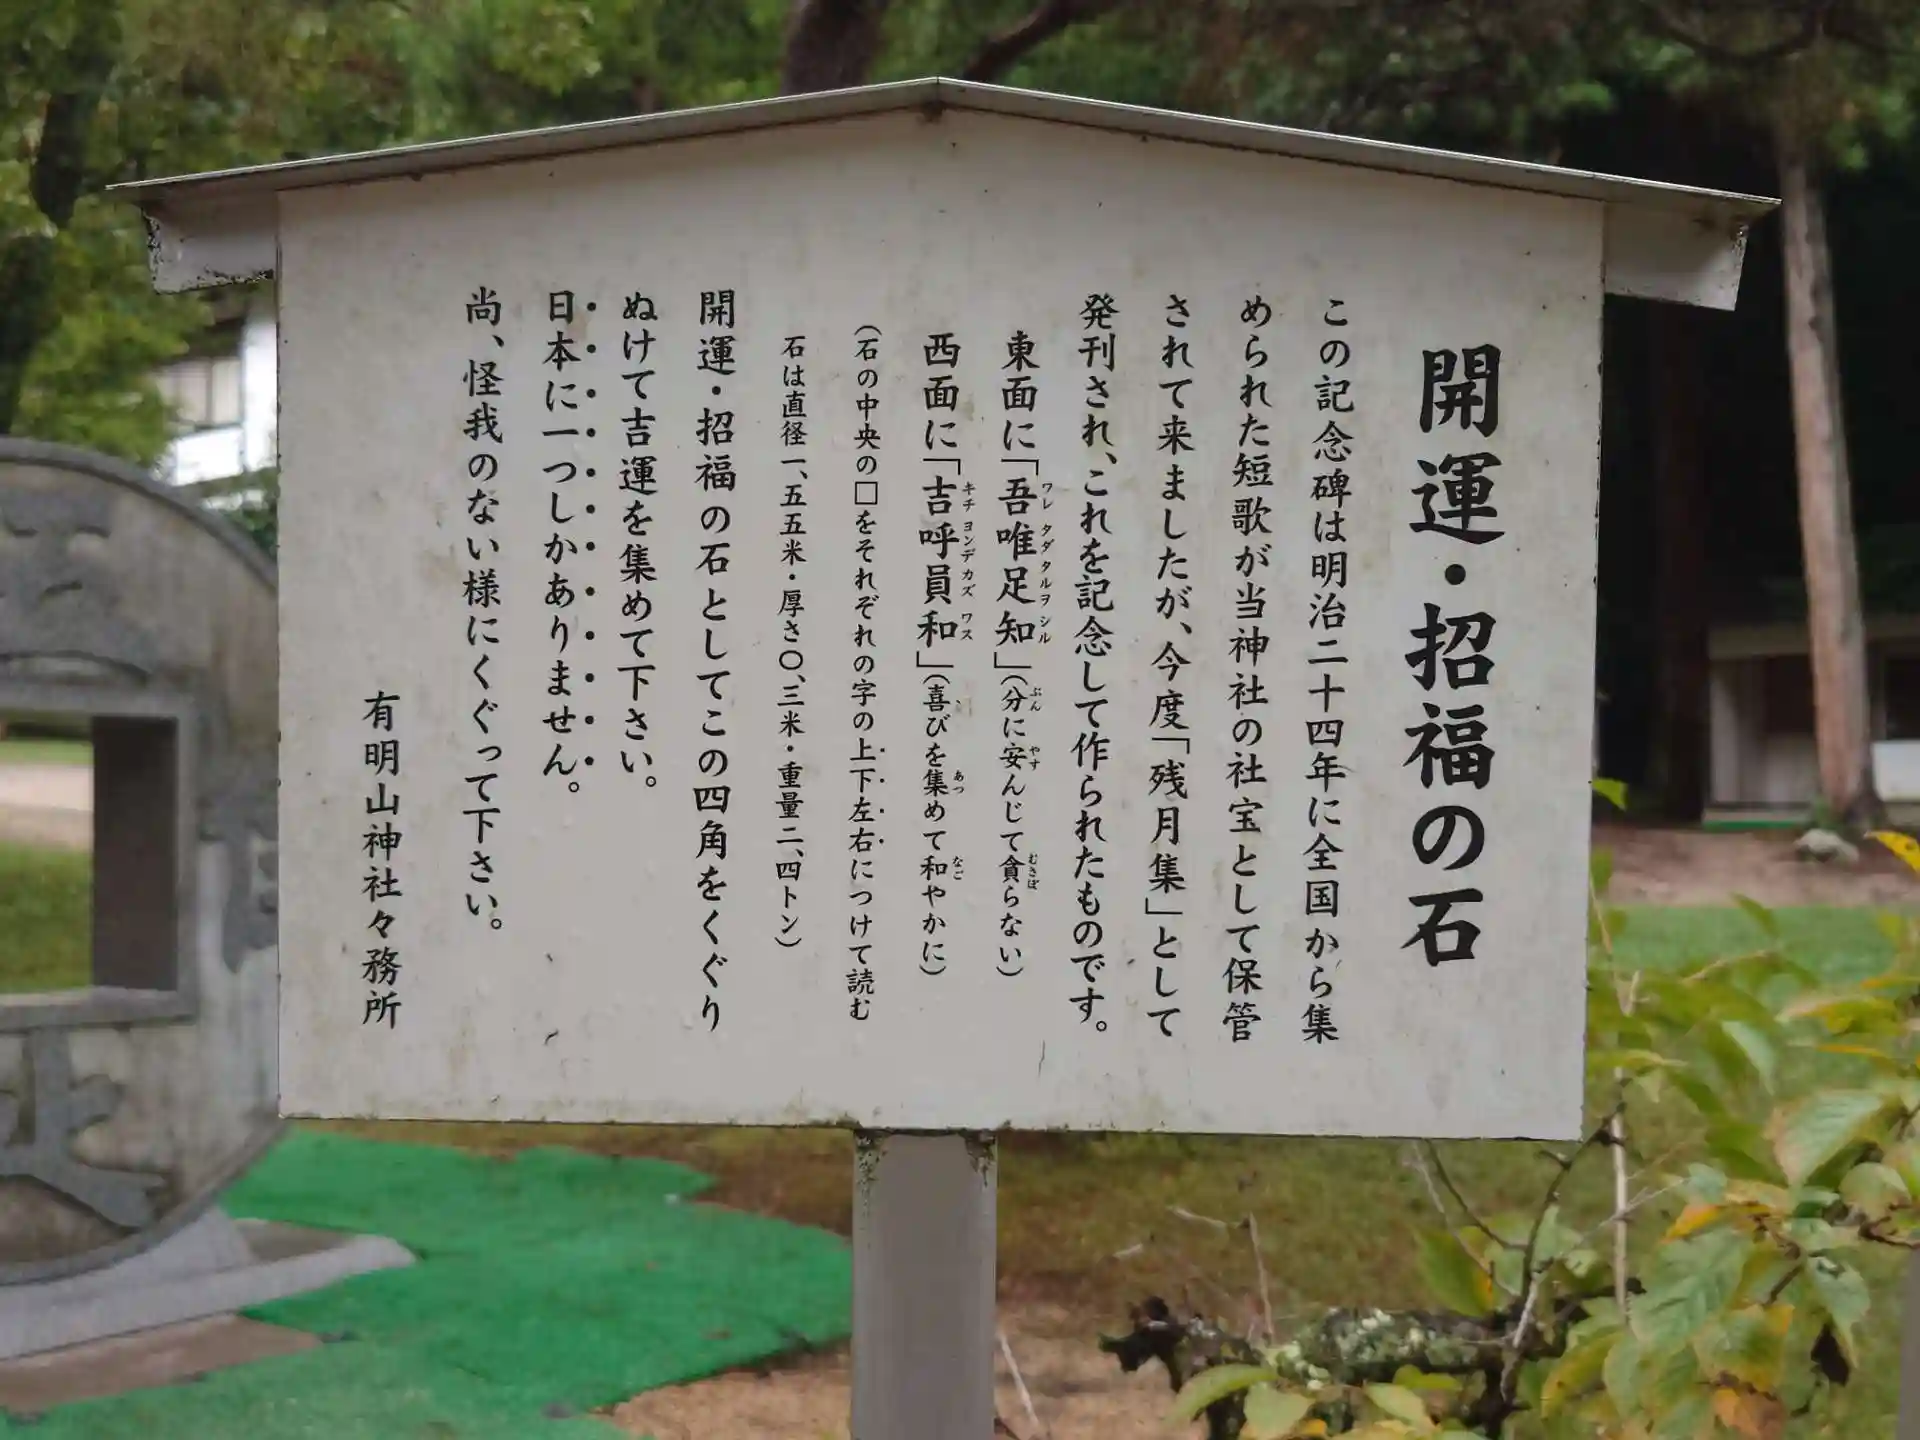 開運・招福の石
この記念碑は明治二十四年に全国から集
められた短歌が当神社の社宝として保管
されて来ましたが、今度「残月集」として
発刊され、これを記念して作られたものです。
東面に「吾唯足知」(分に安んじて貪らない)
ワレ タダ タルヲ シル
ぶん やす むさぼ
西面に「吉呼員和」(喜びを集めて和やかに)
キチ ヨンデ カズ ワス
あつ なご
(石の中央の□をそれぞれの字の上下左右につけて読む
石は直径一、五五米・厚さ〇、三米・重量二、四トン)
開運・招福の石としてこの四角をくぐり
ぬけて吉運を集めて下さい。
日本に一つしかありません。
尚、怪我のない様にくぐって下さい。
有明山神社々務所